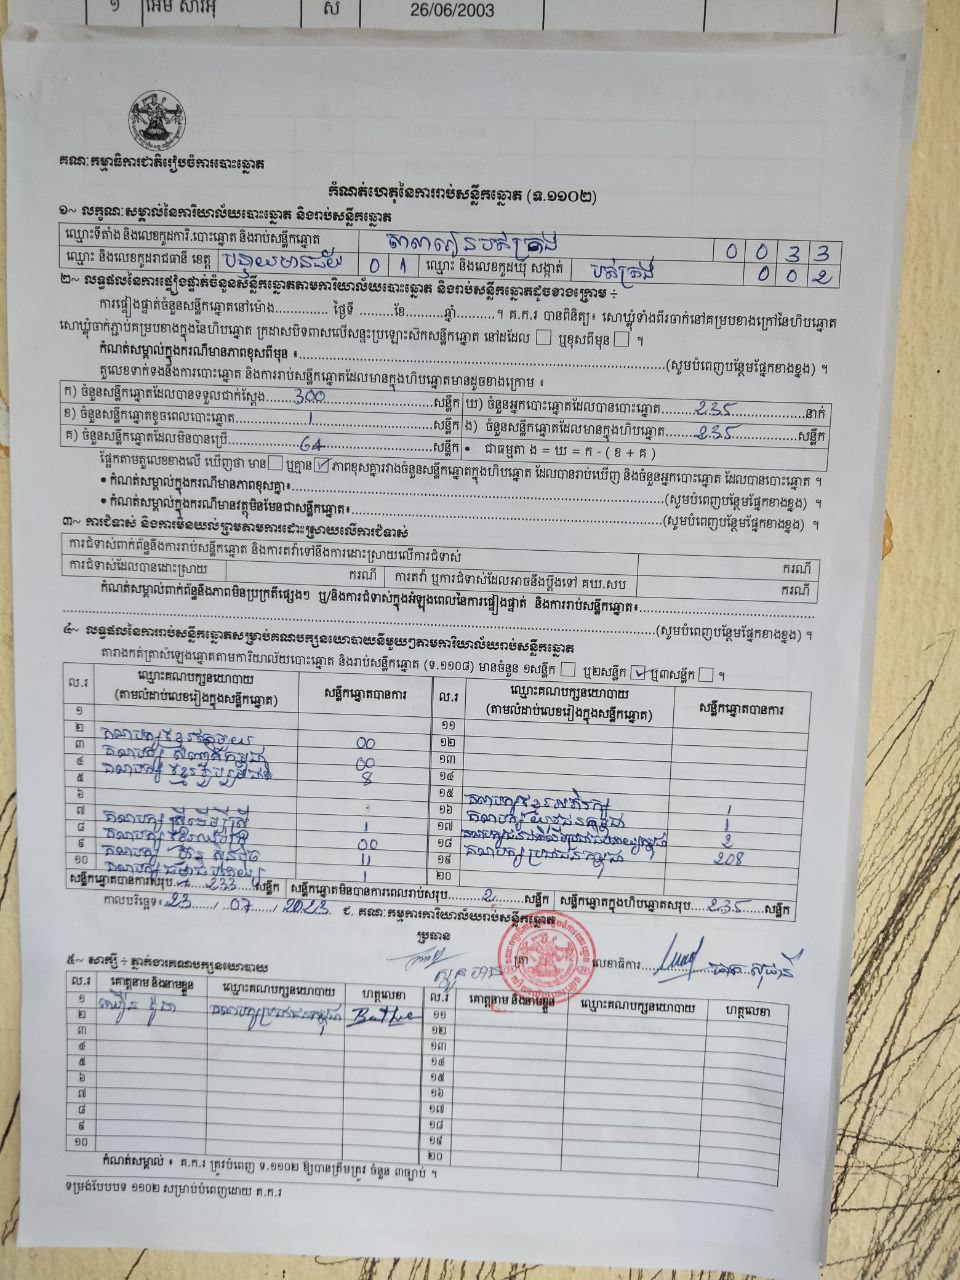 ១ អើម សារអុំ ស 26/06/2003
គណៈកម្មាធិការជាតិរៀបចំការបោះឆ្នោត
កំណត់ហេតុនៃការរាប់សន្លឹកឆ្នោត (ទ.១១០២)
១~ លក្ខណៈសម្គាល់នៃការិយាល័យបោះឆ្នោត និងរាប់សន្លឹកឆ្នោត
ឈ្មោះទីតាំង និងលេខកូដការិ.បោះឆ្នោត និងរាប់សន្លឹកឆ្នោត 0 0 3 3
ឈ្មោះ និងលេខកូដរាជធានី ខេត្ត បន្ទាយមានជ័យ 0 1 ឈ្មោះ និងលេខកូដឃុំ សង្កាត់ បត់ត្រង់ 0 0 2
២~ លទ្ធផលនៃការផ្ទៀងផ្ទាត់ចំនួនសន្លឹកឆ្នោតតាមការិយាល័យបោះឆ្នោត និងរាប់សន្លឹកឆ្នោតដូចខាងក្រោម ÷
ការផ្ទៀងផ្ទាត់ចំនួនសន្លឹកឆ្នោតនៅម៉ោង............. ថ្ងៃទី .........ខែ.........ឆ្នាំ.........។ គ.ក.រ បានពិនិត្យ៖ សោឃ្លុំទាំងពីរចាក់នៅគម្របខាងក្រៅនៃហិបឆ្នោត
សោឃ្លុំចាក់ភ្ជាប់គម្របខាងក្នុងនៃហិបឆ្នោត ក្រដាសបិទពាសលើសន្ទះប្រឡោះស៊កសន្លឹកឆ្នោត នៅដដែល ឬខុសពីមុន ។
កំណត់សម្គាល់ក្នុងករណីមានភាពខុសពីមុន ៖...........(សូមបំពេញបន្ថែមផ្នែកខាងខ្នង) ។
តួលេខទាក់ទងនឹងការបោះឆ្នោត និងការរាប់សន្លឹកឆ្នោតដែលមានក្នុងហិបឆ្នោតមានដូចខាងក្រោម ៖
ក) ចំនួនសន្លឹកឆ្នោតដែលបានទទួលជាក់ស្ដែង......300......សន្លឹក ឃ) ចំនួនអ្នកបោះឆ្នោតដែលបានបោះឆ្នោត.......235.......នាក់
ខ) ចំនួនសន្លឹកឆ្នោតខូចពេលបោះឆ្នោត......1......សន្លឹក ង) ចំនួនសន្លឹកឆ្នោតដែលមានក្នុងហិបឆ្នោត......235......សន្លឹក
គ) ចំនួនសន្លឹកឆ្នោតដែលមិនបានប្រើ......64......សន្លឹក • ជាធម្មតា ង = ឃ = ក - ( ខ + គ )
ផ្អែកតាមតួលេខខាងលើ ឃើញថា មាន ឬគ្មាន ✓ ភាពខុសគ្នារវាងចំនួនសន្លឹកឆ្នោតក្នុងហិបឆ្នោត ដែលបានរាប់ឃើញ និងចំនួនអ្នកបោះឆ្នោត ដែលបានបោះឆ្នោត ។
• កំណត់សម្គាល់ក្នុងករណីមានភាពខុសគ្នា៖...........(សូមបំពេញបន្ថែមផ្នែកខាងខ្នង) ។
• កំណត់សម្គាល់ក្នុងករណីមានវត្ថុមិនមែនជាសន្លឹកឆ្នោត៖...........(សូមបំពេញបន្ថែមផ្នែកខាងខ្នង) ។
៣~ ការជំទាស់ និងការមិនយល់ព្រមតាមការដោះស្រាយលើការជំទាស់
ការជំទាស់ពាក់ព័ន្ធនឹងការរាប់សន្លឹកឆ្នោត និងការតវ៉ាទៅនឹងការដោះស្រាយលើការជំទាស់ ករណី
ការជំទាស់ដែលបានដោះស្រាយ ករណី ការតវ៉ា ឬការជំទាស់ដែលអាចនឹងប្ដឹងទៅ គឃ.សប ករណី
កំណត់សម្គាល់ពាក់ព័ន្ធនឹងភាពមិនប្រក្រតីផ្សេងៗ ឬ/និងការជំទាស់ក្នុងអំឡុងពេលនៃការផ្ទៀងផ្ទាត់ និងការរាប់សន្លឹកឆ្នោត៖...........
...........(សូមបំពេញបន្ថែមផ្នែកខាងខ្នង) ។
៤~ លទ្ធផលនៃការរាប់សន្លឹកឆ្នោតសម្រាប់គណបក្សនយោបាយនីមួយៗតាមការិយាល័យរាប់សន្លឹកឆ្នោត
តារាងកត់ត្រាសំឡេងឆ្នោតតាមការិយាល័យបោះឆ្នោត និងរាប់សន្លឹកឆ្នោត (ទ.១១០៨) មានចំនួន ១សន្លឹក ឬ២សន្លឹក ✓ ឬ៣សន្លឹក ។
ល.រ ឈ្មោះគណបក្សនយោបាយ (តាមលំដាប់លេខរៀងក្នុងសន្លឹកឆ្នោត) សន្លឹកឆ្នោតបានការ ល.រ ឈ្មោះគណបក្សនយោបាយ (តាមលំដាប់លេខរៀងក្នុងសន្លឹកឆ្នោត) សន្លឹកឆ្នោតបានការ
១ ១១
២ 00 ១២
៣ 00 ១៣
៤ 8 ១៤
៥ ១៥ 1
៦ ១៦ គណបក្សយុវជនកម្ពុជា 1
៧ 1 ១៧ 2
៨ 00 ១៨ គណបក្សប្រជាជនកម្ពុជា 208
៩ 11 ១៩
១០ 1 ២០
សន្លឹកឆ្នោតបានការសរុប....233....សន្លឹក សន្លឹកឆ្នោតមិនបានការពេលរាប់សរុប......2......សន្លឹក សន្លឹកឆ្នោតក្នុងហិបឆ្នោតសរុប...235....សន្លឹក
កាលបរិច្ឆេទ៖ 23 / 07 / 2023 ជ. គណៈកម្មការការិយាល័យរាប់សន្លឹកឆ្នោត
ប្រធាន
ត្រា លេខាធិការ
៥~ សាក្សី ÷ ភ្នាក់ងារគណបក្សនយោបាយ
ល.រ គោត្តនាម និងនាមខ្លួន ឈ្មោះគណបក្សនយោបាយ ហត្ថលេខា ល.រ គោត្តនាម និងនាមខ្លួន ឈ្មោះគណបក្សនយោបាយ ហត្ថលេខា
១ គណបក្សប្រជាជនកម្ពុជា ១១
២ ១២
៣ ១៣
៤ ១៤
៥ ១៥
៦ ១៦
៧ ១៧
៨ ១៨
៩ ១៩
១០ ២០
កំណត់សម្គាល់ ៖ គ.ក.រ ត្រូវបំពេញ ទ.១១០២ ឱ្យបានត្រឹមត្រូវ ចំនួន ៣ច្បាប់ ។
ទម្រង់បែបបទ ១១០២ សម្រាប់បំពេញដោយ គ.ក.រ